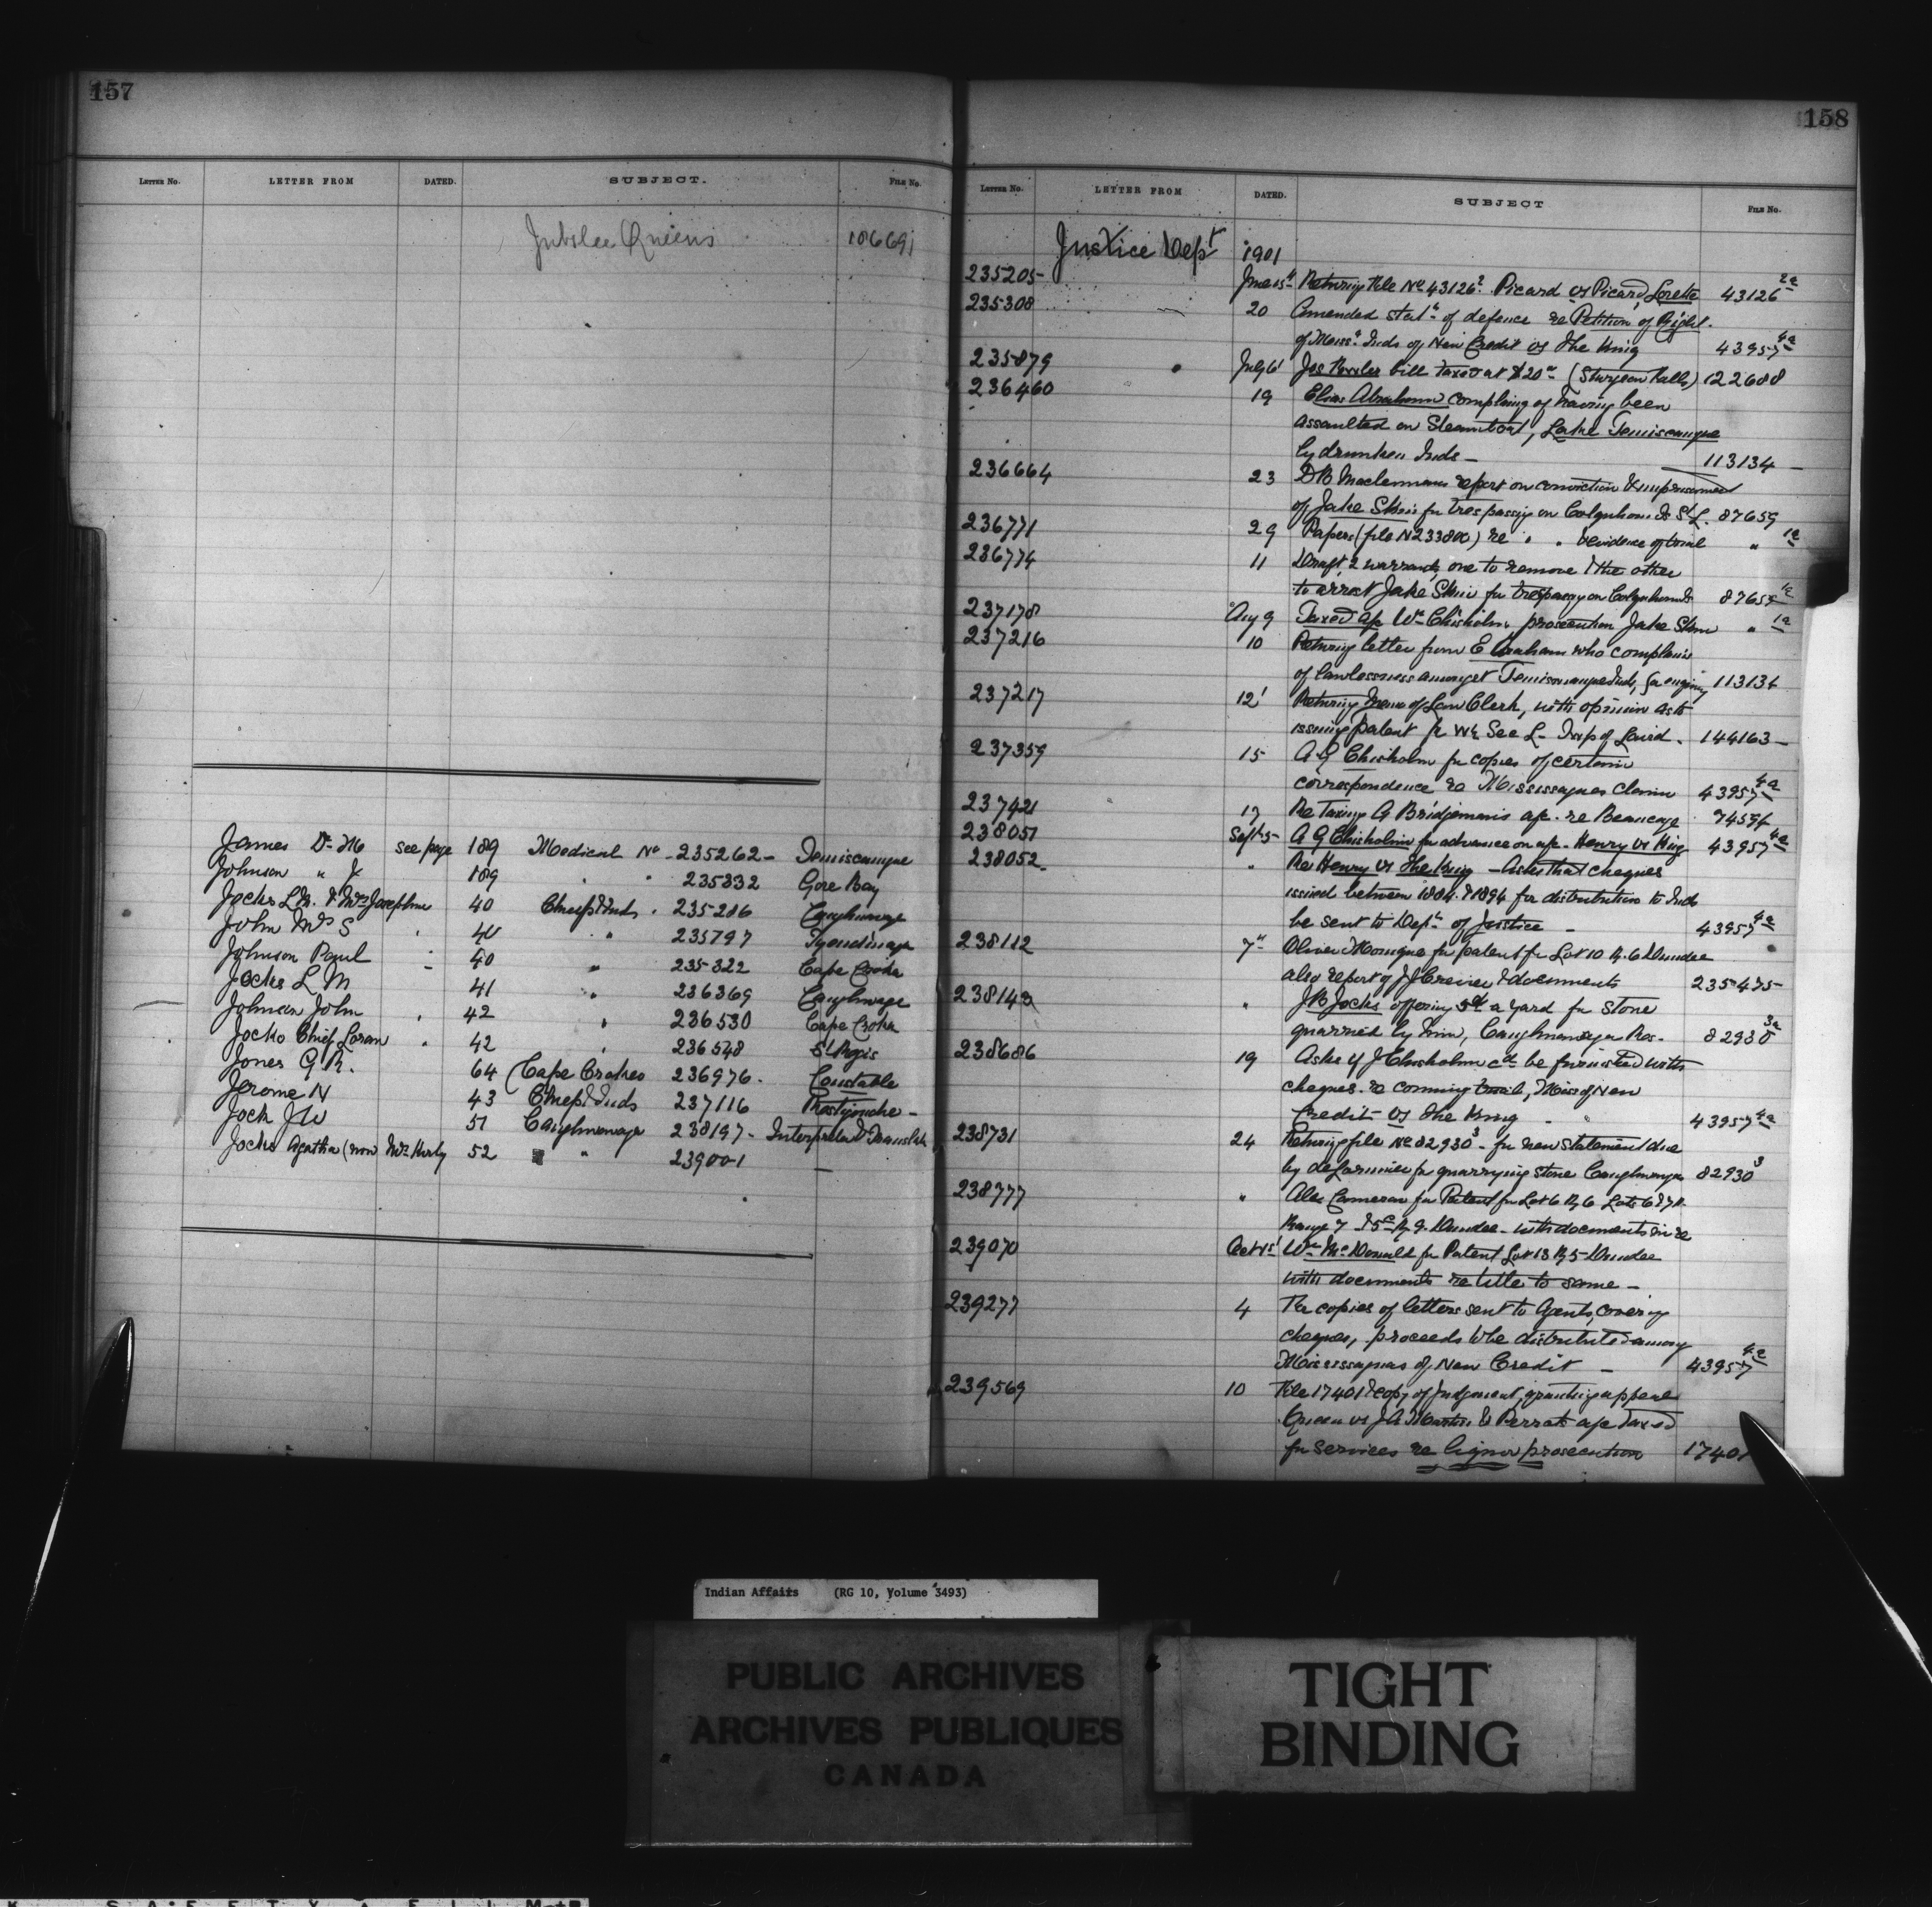 157
LETTER NO. LETTER FROM DATED. SUBJECT. FILE No.
Jubilee Queens 106691
James Dr M see page 189 Medical No - 235262 - Temiscamque
Johnson " J 189 " " 235332 Gore Bay
Jocks L M. & Mrs Josephine 40 Chiefs & Inds. 235286 Caughnawaga
John Mrs S 40 " 235797 Tyendinaga
Johnson Paul 40 " 235822 Cape Croker
Jocks L M 41 " 236369 Caughnawaga
Johnson John 42 " 236530 Cape Croker
Jocko Chief Loran 42 " 236548 St Regis
Jones G R. 64 (Cape Croker 236976. Constable
Jerome N 43 Chiefs & Inds 237116 Restigouche -
Jock J W 51 Caughnawaga 238197 - Interpreter & Translator
Jocks Agatha (now Mrs Kirby 52 " 239001 —
158
LETTER NO. LETTER FROM DATED. SUBJECT FILE No.
Justice Dept 1901
235205 June 15 Returning File No 43126 2. Picard vs Picard, Lorette 43126 2a
235308 20 Amended stat. of defence re Petition of Right.
of Miss. Inds of New Credit vs The King 43957 4a
235879 July 6 Jos bill taxed at $20 (Sturgeon Falls) 122688
236460 19 Elias Abraham complaing of having been
assaulted on Steamboat, Lake Temiscamque
by drunken Inds - 113134 -
236664 23 D B Maclennans report on conviction & imprisonment
of Jake Skin for trespassing on Colquhoun Is St L. 87659
236771 29 Papers (file N 233800) re " " & evidence of trial " 1a
236774 11 Draft, 2 warrants, one to remove & the other
to arrest Jake Skin for trespassg on Colquhoun Is 87659 1a
237178 Aug 9 Taxed a/c Wm Chisholm prosecution Jake Skin " 1a
237216 10 Returng letter from E Abraham who complains
of lawlessness amongst Temiscamque Inds, for enquiry 113134
237217 12 Returng Memo of Law Clerk, with opinion as to
issuing patent for W½ Sec L - Twp of Laird. 144163 -
237359 15 A G Chisholm for copies of certain
correspondence re Mississaguas claim 43957 4a
237421 17 Re Taxing G Bridgeman's a/c. re Beaucage 74594
238051 Sept 5 A G Chisholm for advance on a/c - Henry vs King 43957 4a
238052. " Re Henry vs The King - Asks that cheques
issued between 1884 & 1894 for distribution to Inds
be sent to Dept of Justice - 43957 4a
238112 7 Oliver for patent for Lot 10 R. 6 Dundee
also report of J J Crevier & documents 235475
238143 " J B Jocks offering 5ct a yard for stone
quarried by him, Caughnawaga Res. 82930 3a
238686 19 Asks if J Chisholm cd be furnished with
cheques. re coming trial, Miss of New
Credit vs The King 43957 4a
238731 24 Returng file No 82930 3 - for new statement due
by deLorimier for quarrying stone Caughnawaga 82930 3
238777 " Alex Cameron for Patent for Lot 6 R 6 Lots 6 & 7
Range 7 & 5 R 9. Dundee - with documents in re
239070 Oct 1st Wm McDonald for Patent Lot 13 R 5 Dundee
with documents re title to same -
239277 4 For copies of letters sent to Agents, covering
cheques, proceeds to be distributed among
Mississaguas of New Credit - 43957 4a
239569 10 File 17401 & copy of Judgment, granting appeal
Queen vs J A Martin & Perrot a/c taxed
for services re liquor prosecution 17401
Indian Affairs (RG 10, Volume 3493)
PUBLIC ARCHIVES
ARCHIVES PUBLIQUES
CANADA
TIGHT
BINDING